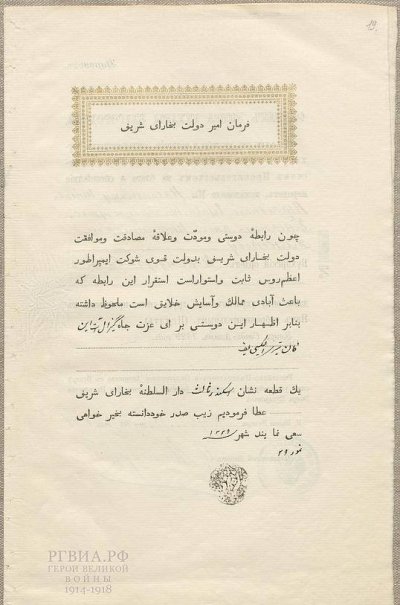 19.
فرمان امیر دولت بخارای شریف
چون رابطهٔ دوستی ومودّت وعلاقهٔ مصادقت وموافقت
دولت بخارای شریف بدولت قوی شوکت ایمپراطور
اعظم روس ثابت واستواراست استقرار این رابطه که
باعث آبادی ممالک وآسایش خلایق است ملحوظ داشته
بنابر اظهار این دوستی بر ای عزت جاه
یك قطعه نشان اسکندر ثالث دار السلطنهٔ بخارای شریف
عطا فرمودیم زیب صدر خوددانسته بخیر خواهی
سعی نما یند شهر ۱۳۲۹
РГВИА.РФ
ГЕРОИ ВЕЛИКОЙ
ВОЙНЫ
1914-1918